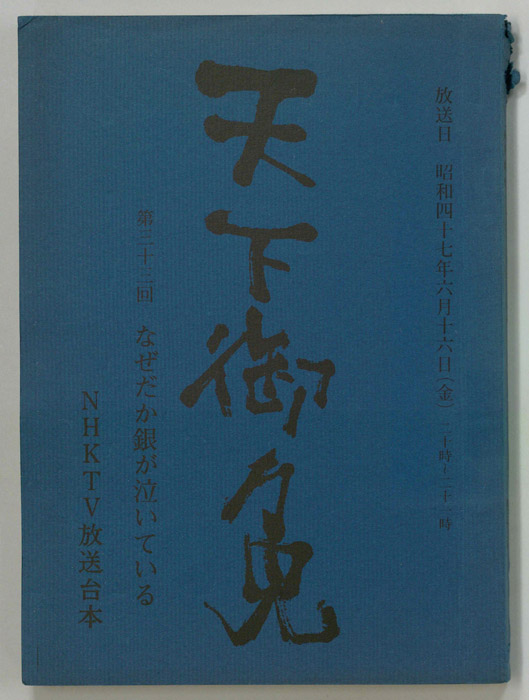 放送日 昭和四十七年六月十六日(金) 二十時-二十一時
天下御免
第三十二回 なぜだか銀が泣いている
NHKTV放送台本